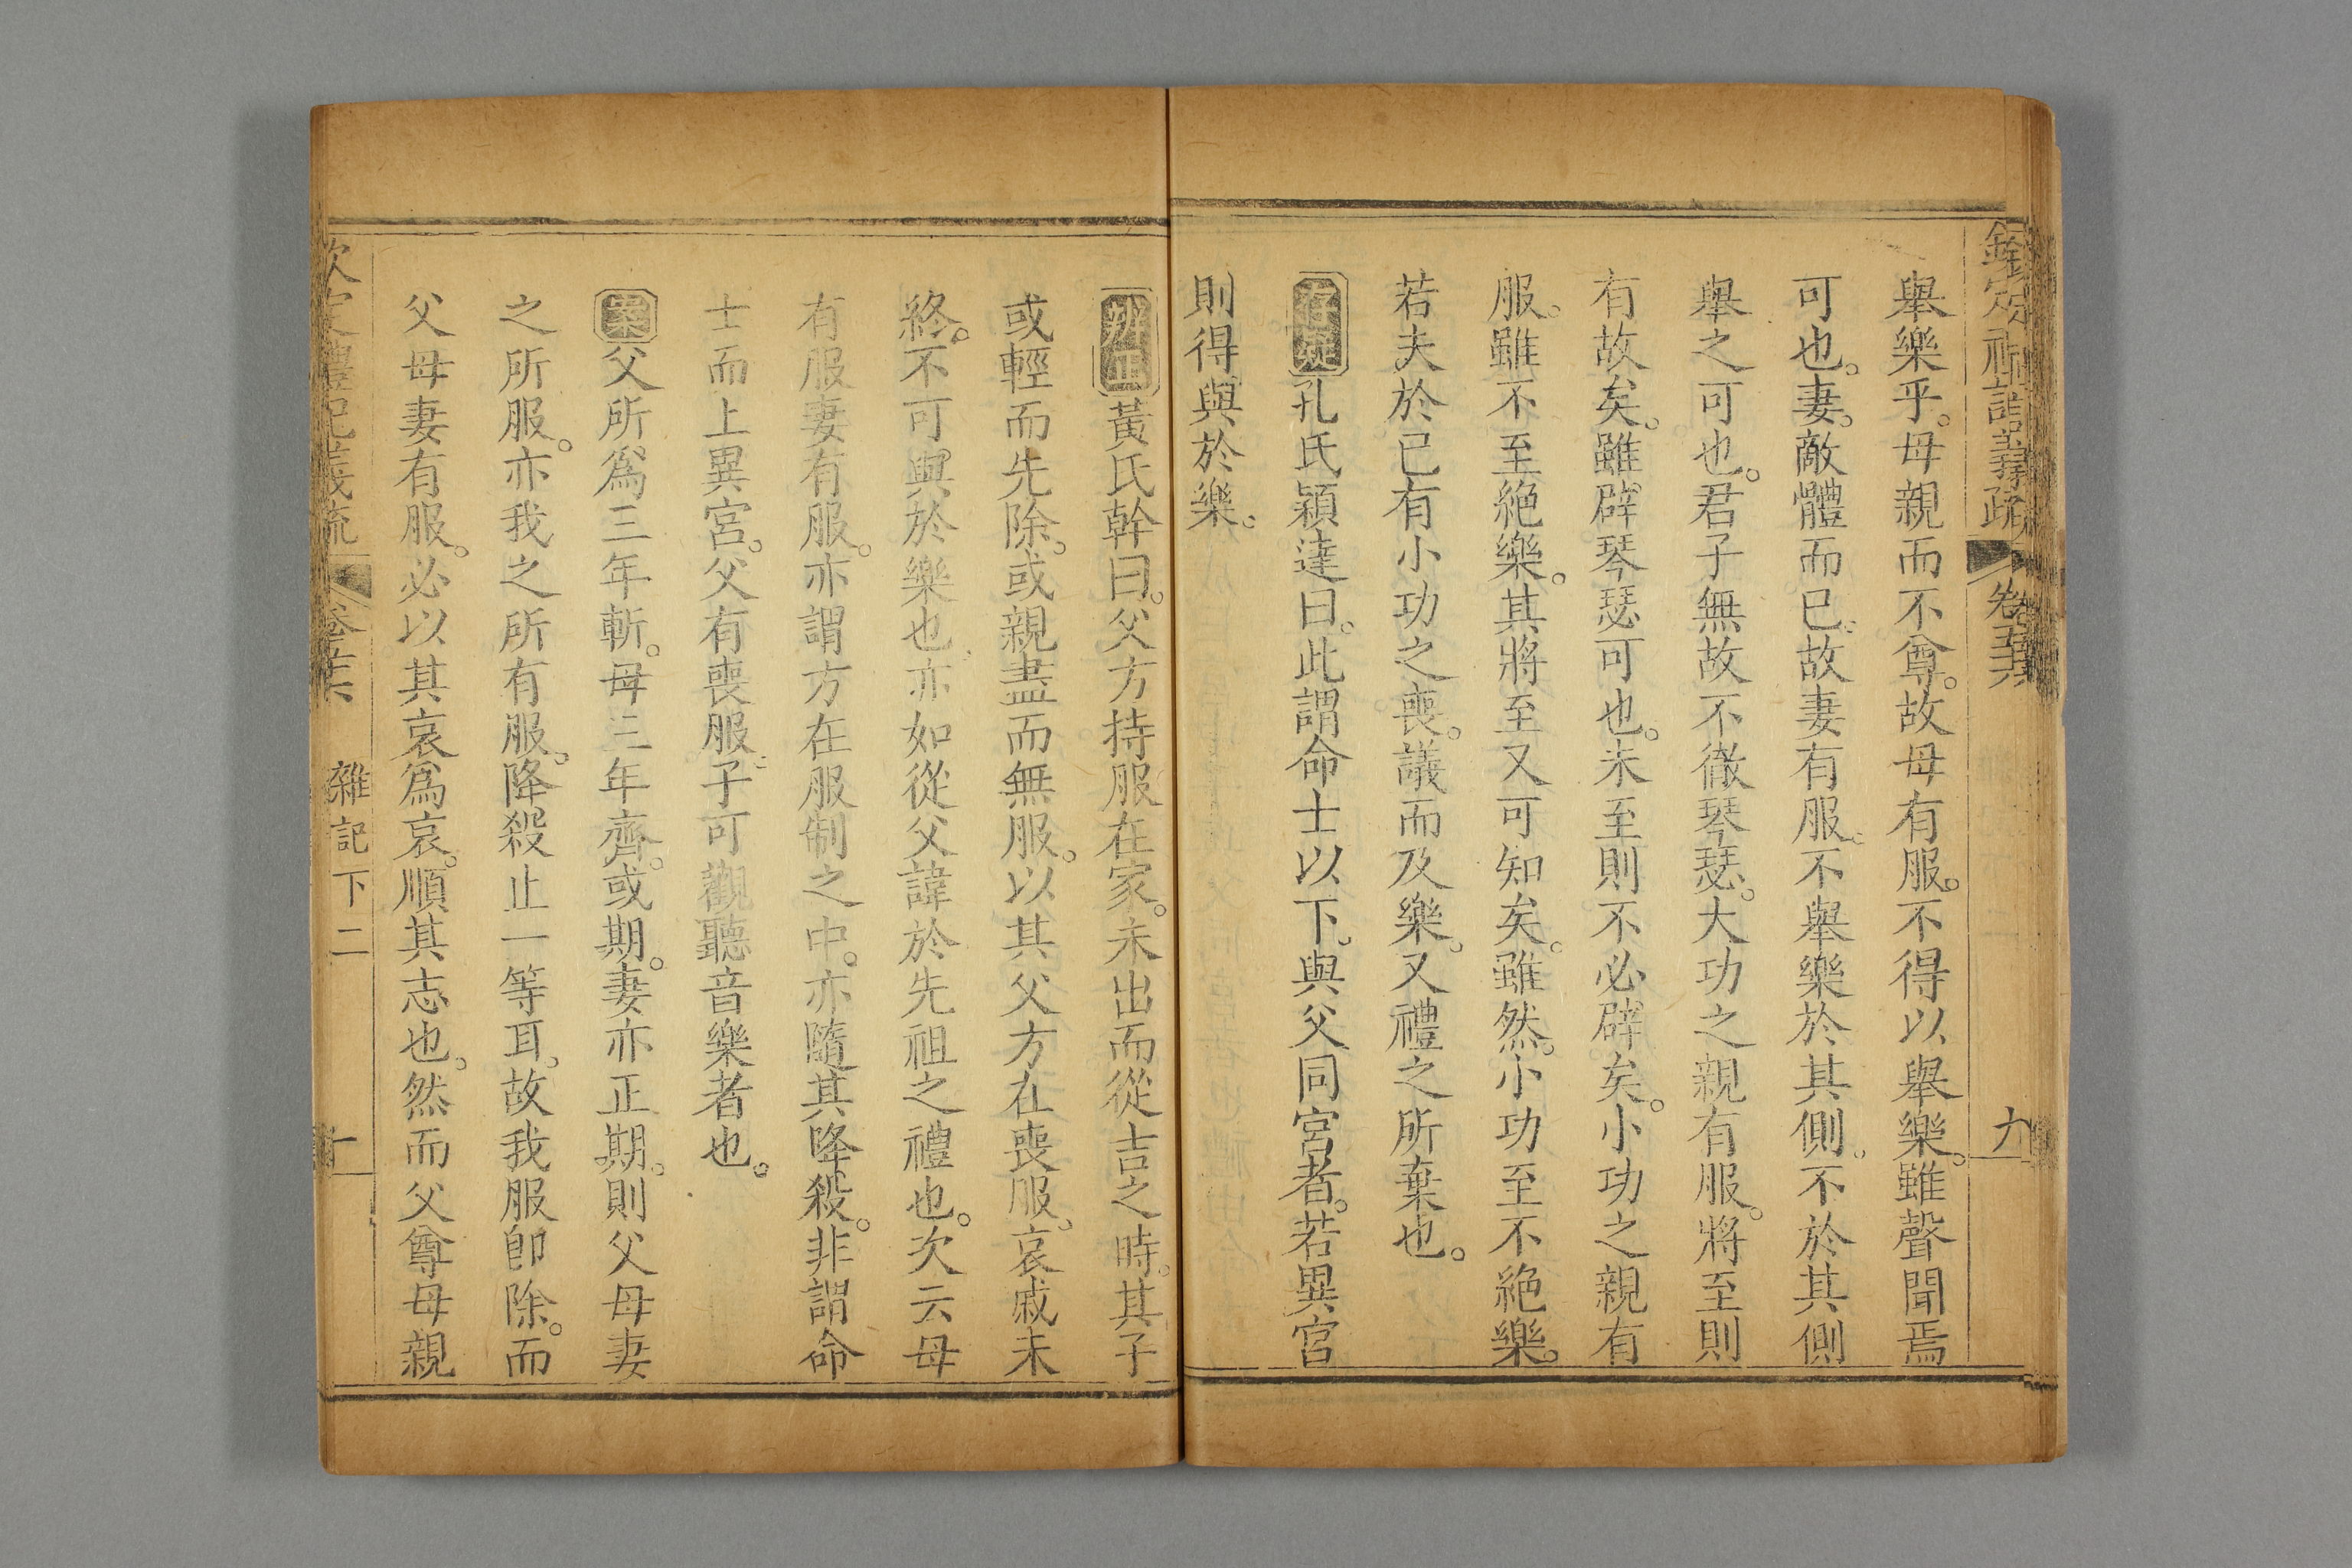 欽定禮記義疏 卷五十六 九
舉樂乎。母親而不尊。故母有服。不得以舉樂。雖聲聞焉
可也。妻。敵體而已。故妻有服。不舉樂於其側。不於其側
舉之可也。君子無故不徹琴瑟。大功之親有服。將至則
有故矣。雖辟琴瑟可也。未至則不必辟矣。小功之親有
服。雖不至絶樂。其將至又可知矣。雖然。小功至不絶樂。
若夫於已有小功之喪。議而及樂。又禮之所棄也。
存疑孔氏穎達曰。此謂命士以下。與父同宮者。若異宮
則得與於樂。
辨正黃氏幹曰。父方持服在家。未出而從吉之時。其子
或輕而先除。或親盡而無服。以其父方在喪服。哀戚未
終。不可與於樂也。亦如從父諱於先祖之禮也。次云母
有服妻有服。亦謂方在服制之中。亦隨其降殺。非謂命
士而上異宮。父有喪服。子可觀聽音樂者也。
案父所爲三年斬。母三年齊。或期。妻亦正期。則父母妻
之所服。亦我之所有服。降殺止一等耳。故我服卽除。而
父母妻有服。必以其哀爲哀。順其志也。然而父尊母親
欽定禮記義疏 卷五十六 雜記下二 十